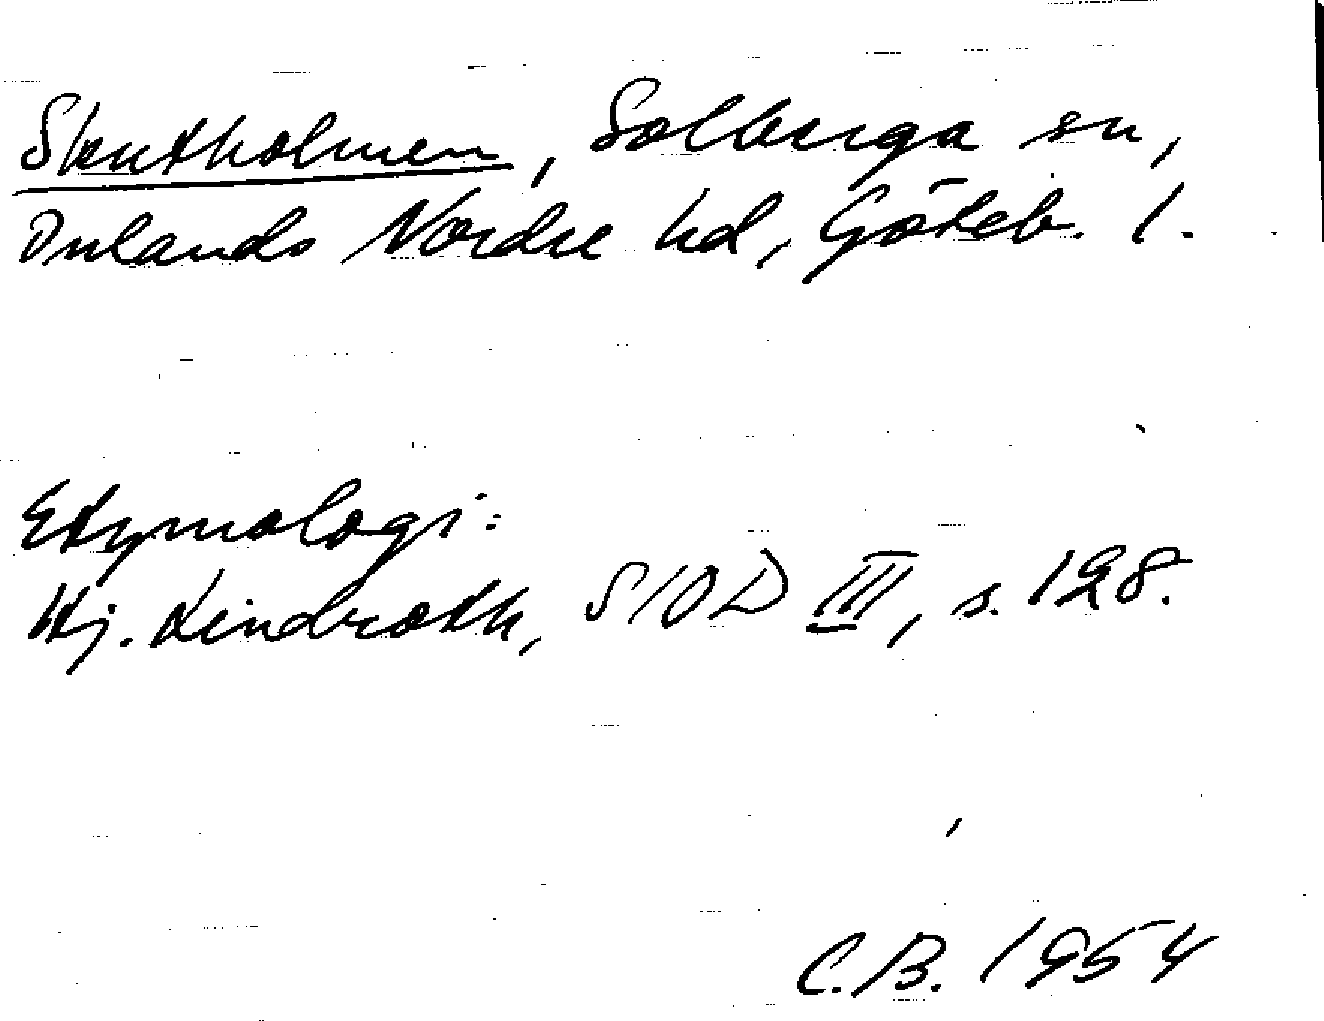 Skutholmen, Solberga sn,
Inlands Nordre hd, Göteb. l.
Etymologi:
Hj. Lindroth, SIOD III, s. 128.
C.B. 1954